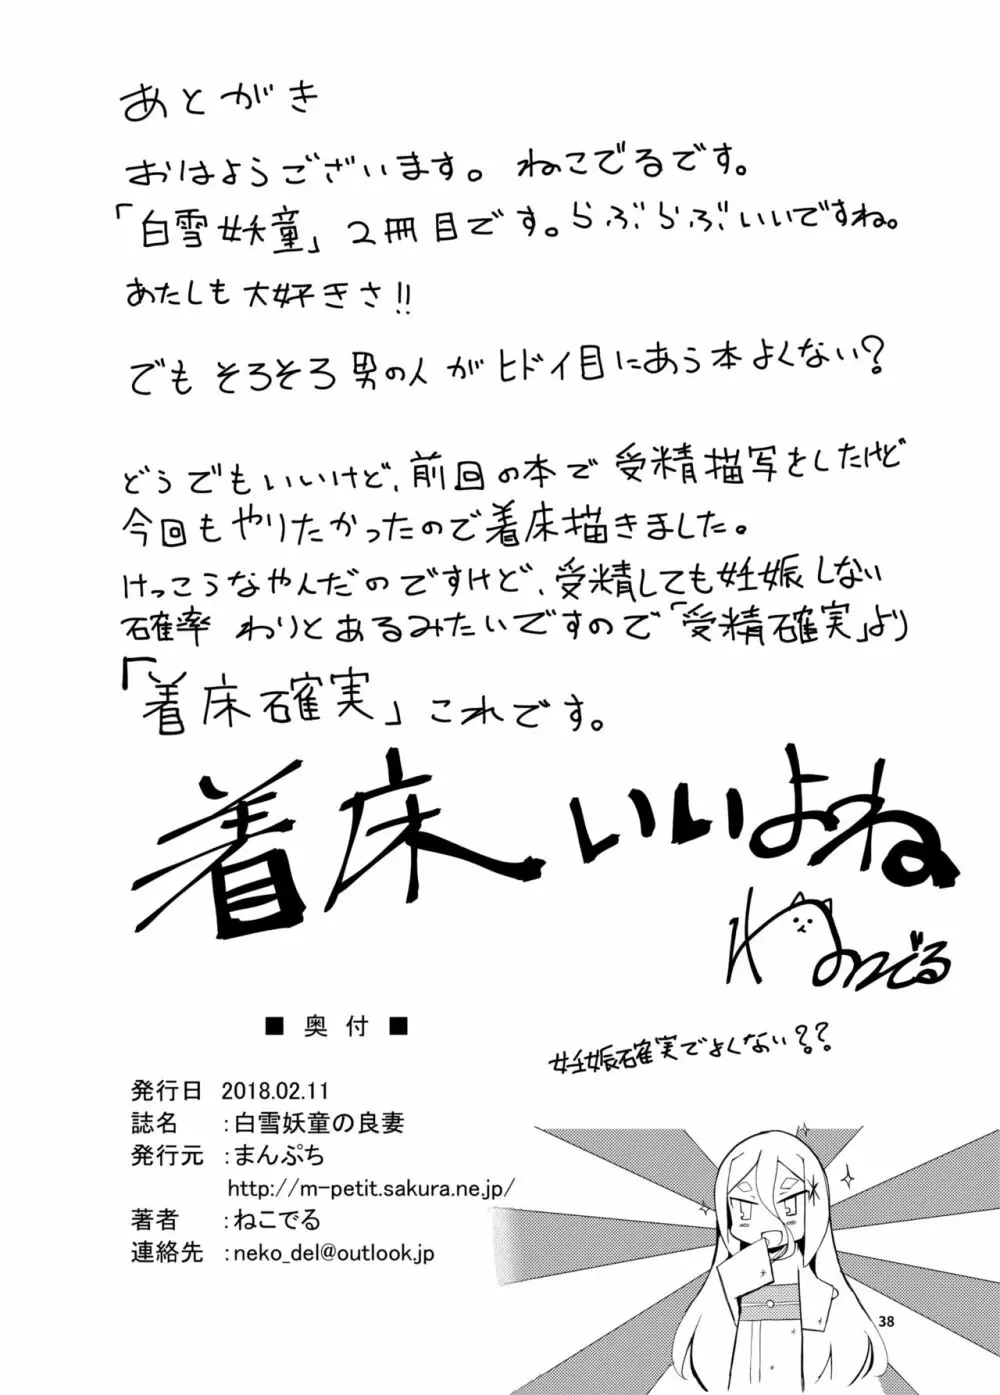 あとがき
おはようございます。ねこでるです。
「白雪妖童」2冊目です。らぶらぶいいですね。
あたしも大好きさ!!
でもそろそろ男の人がヒドイ目にあう本よくない?
どうでもいいけど、前回の本で受精描写をしたけど
今回もやりたかったので着床描きました。
けっこうなやんだのですけど、受精しても妊娠しない
確率わりとあるみたいですので「受精確実」より
「着床確実」これです。
着床いいよね
ねこでる
妊娠確実でよくない??
■ 奥 付 ■
発行日 2018.02.11
誌名 :白雪妖童の良妻
発行元 :まんぷち
http://m-petit.sakura.ne.jp/
著者 :ねこでる
連絡先 :neko_del@outlook.jp
38